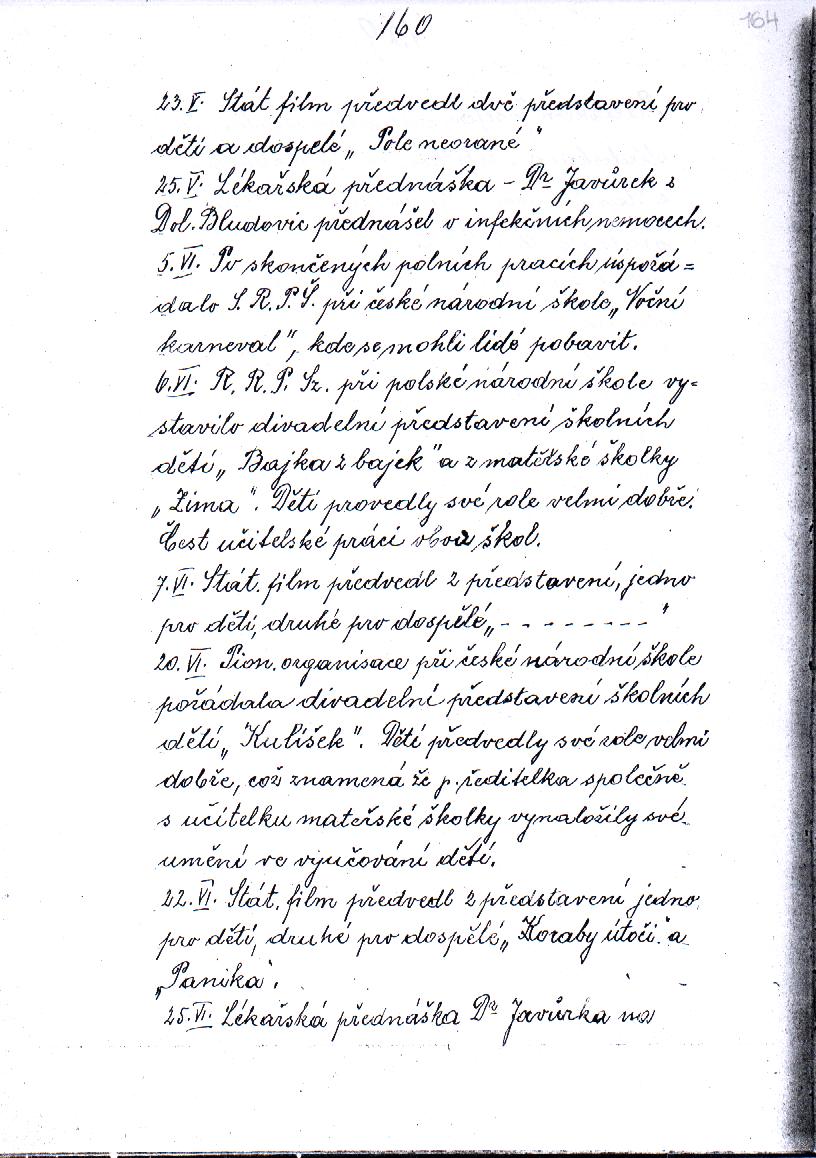 160
164
23.V. Stát film předvedl dvě představení pro
děti a dospelé „Pole neorané"
25.V. Lékařská přednáška – Dr Javůrek z
Dol. Bludovic přednášel o infekčních nemocech.
5.VI. Po skončených polních pracích uspořá=
dalo S.R.P.Š. při české národní škole „Noční
karneval", kde se mohli lidé pobavit.
6.VI. R.R.P.Sz. při polské národní škole vy=
stavilo divadelní představení školních
dětí „Bajka z bajek" a z mateřské školky
„Zima". Děti provedly své role velmi dobře.
Čest učitelské práci obou škol.
7.VI. Stát. film předvedl 2 představení, jedno
pro děti, druhé pro dospělé „- - - - - - - - -"
20.VI. Pion. organisace při české národní škole
pořádala divadelní představení školních
dětí „Kulíšek". Děti předvedly své role velmi
dobře, což znamená že p. ředitelka společně
s učitelku mateřské školky vynaložily své
umění ve vyučování dětí.
22.VI. Stát. film předvedl 2 představení jedno
pro děti, druhé pro dospělé „Koraby útočí" a
„Panika".
25.VI. Lékařská přednáška Dr Javůrka na